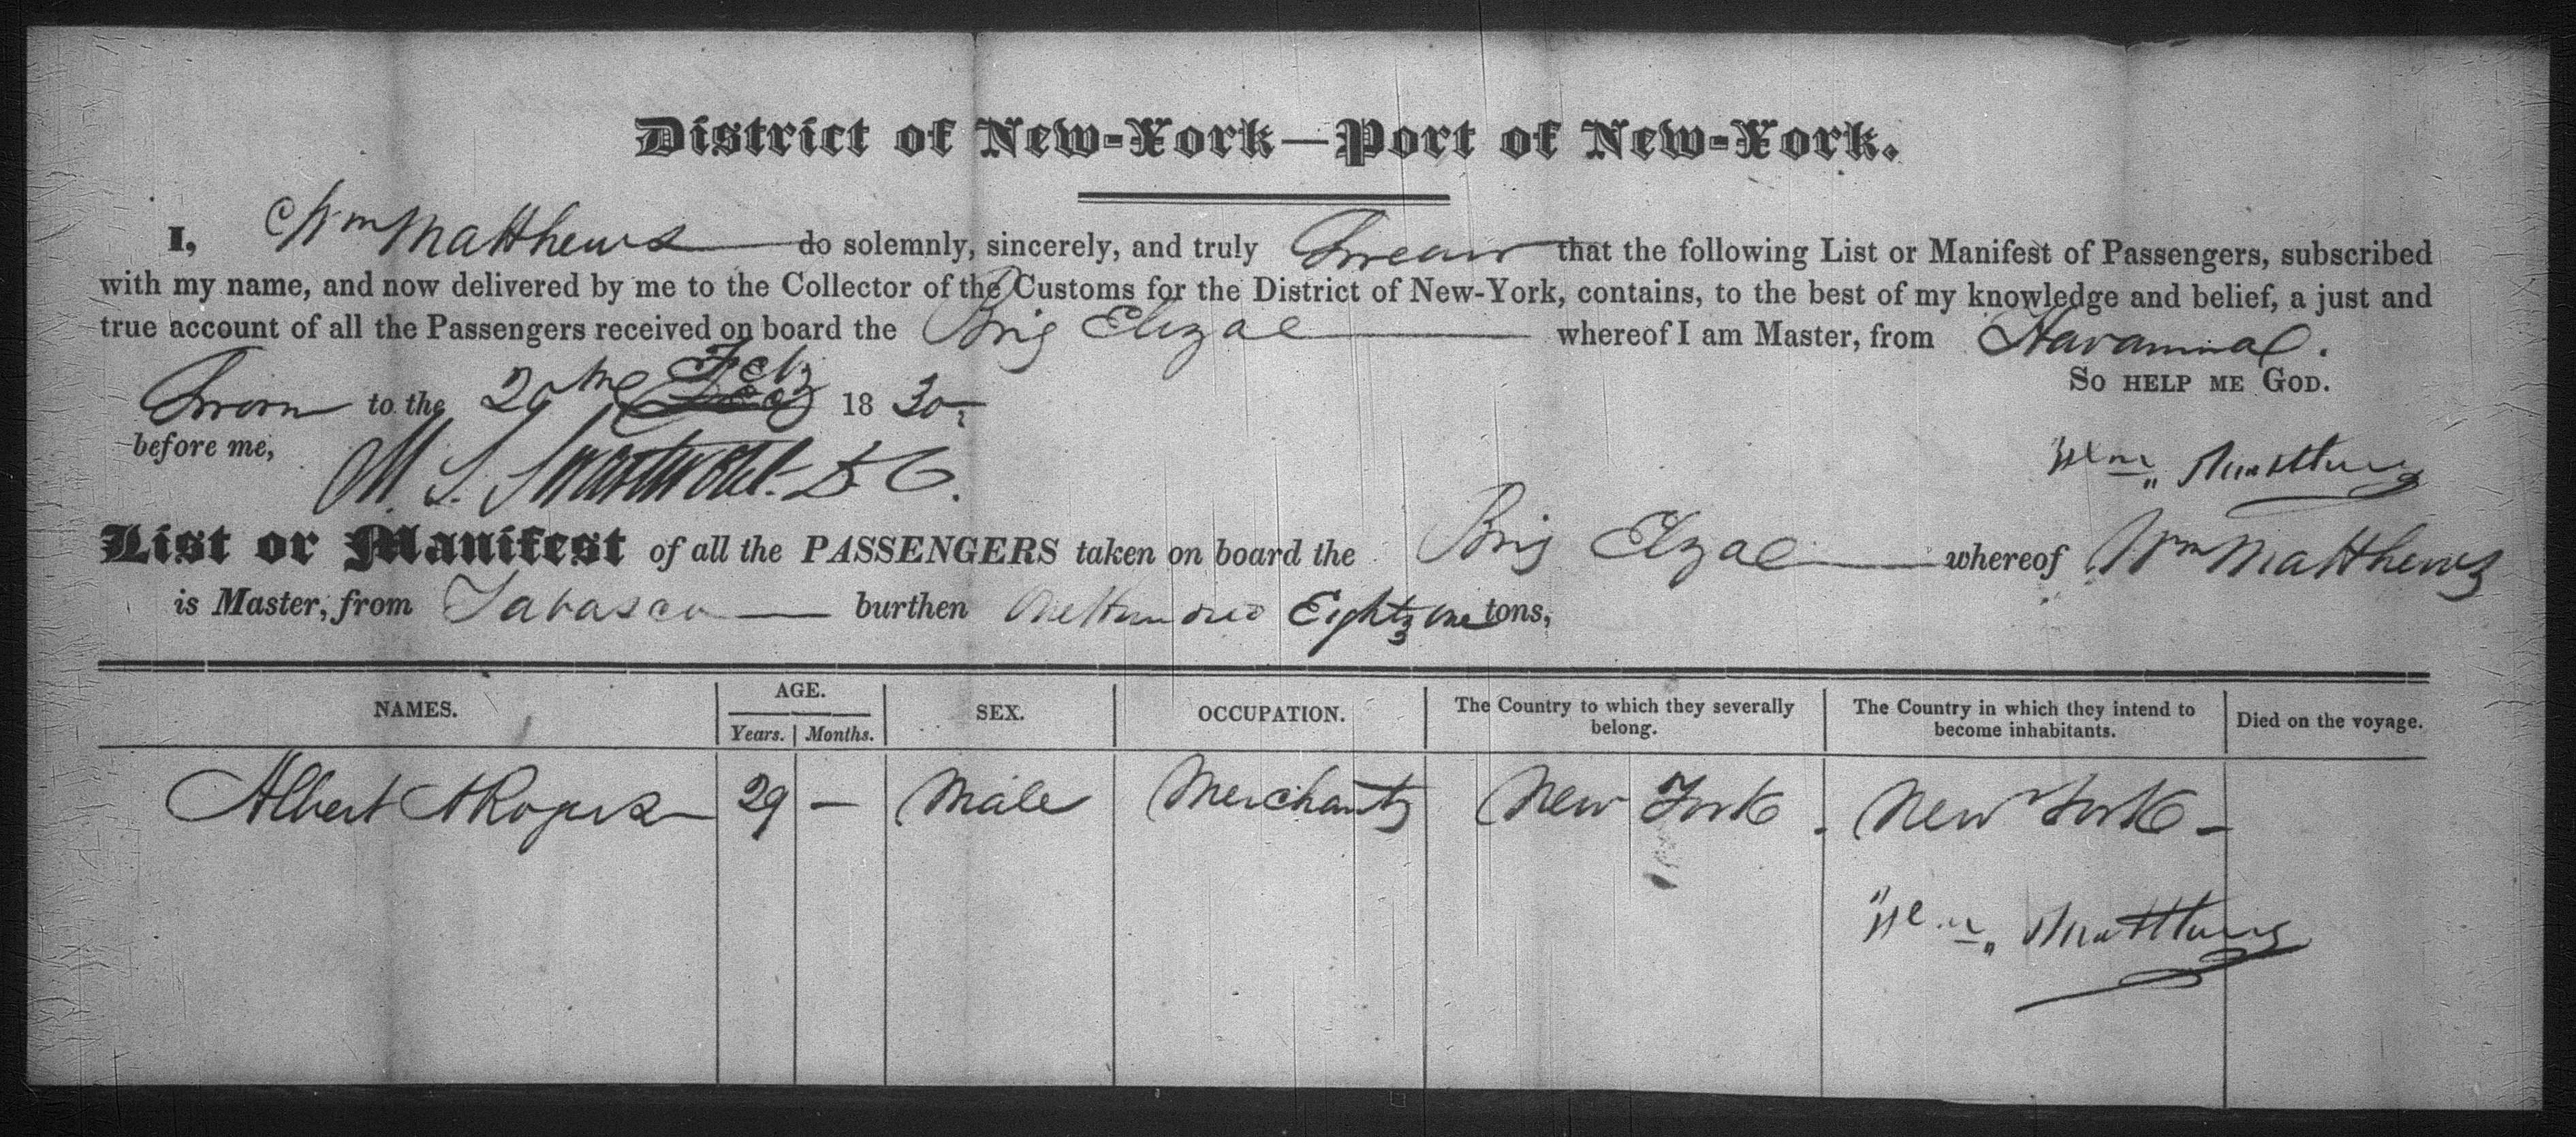 District of New-York—Port of New-York.
I, Wm Matthews do solemnly, sincerely, and truly Swear that the following List or Manifest of Passengers, subscribed
with my name, and now delivered by me to the Collector of the Customs for the District of New-York, contains, to the best of my knowledge and belief, a just and
true account of all the Passengers received on board the Brig Eliza whereof I am Master, from Havanna.
So help me God.
Sworn to the 20th Feby 1830
before me,
Wm Matthews
M. S. Swartwout D C.
List or Manifest of all the PASSENGERS taken on board the Brig Eliza whereof Wm Matthews
is Master, from Tabasco burthen One Hundred Eighty One tons,
NAMES. AGE. SEX. OCCUPATION. The Country to which they severally belong. The Country in which they intend to become inhabitants. Died on the voyage.
Years. Months.
Albert A Rogers 29 — Male Merchant New York. New York —
Wm Matthews